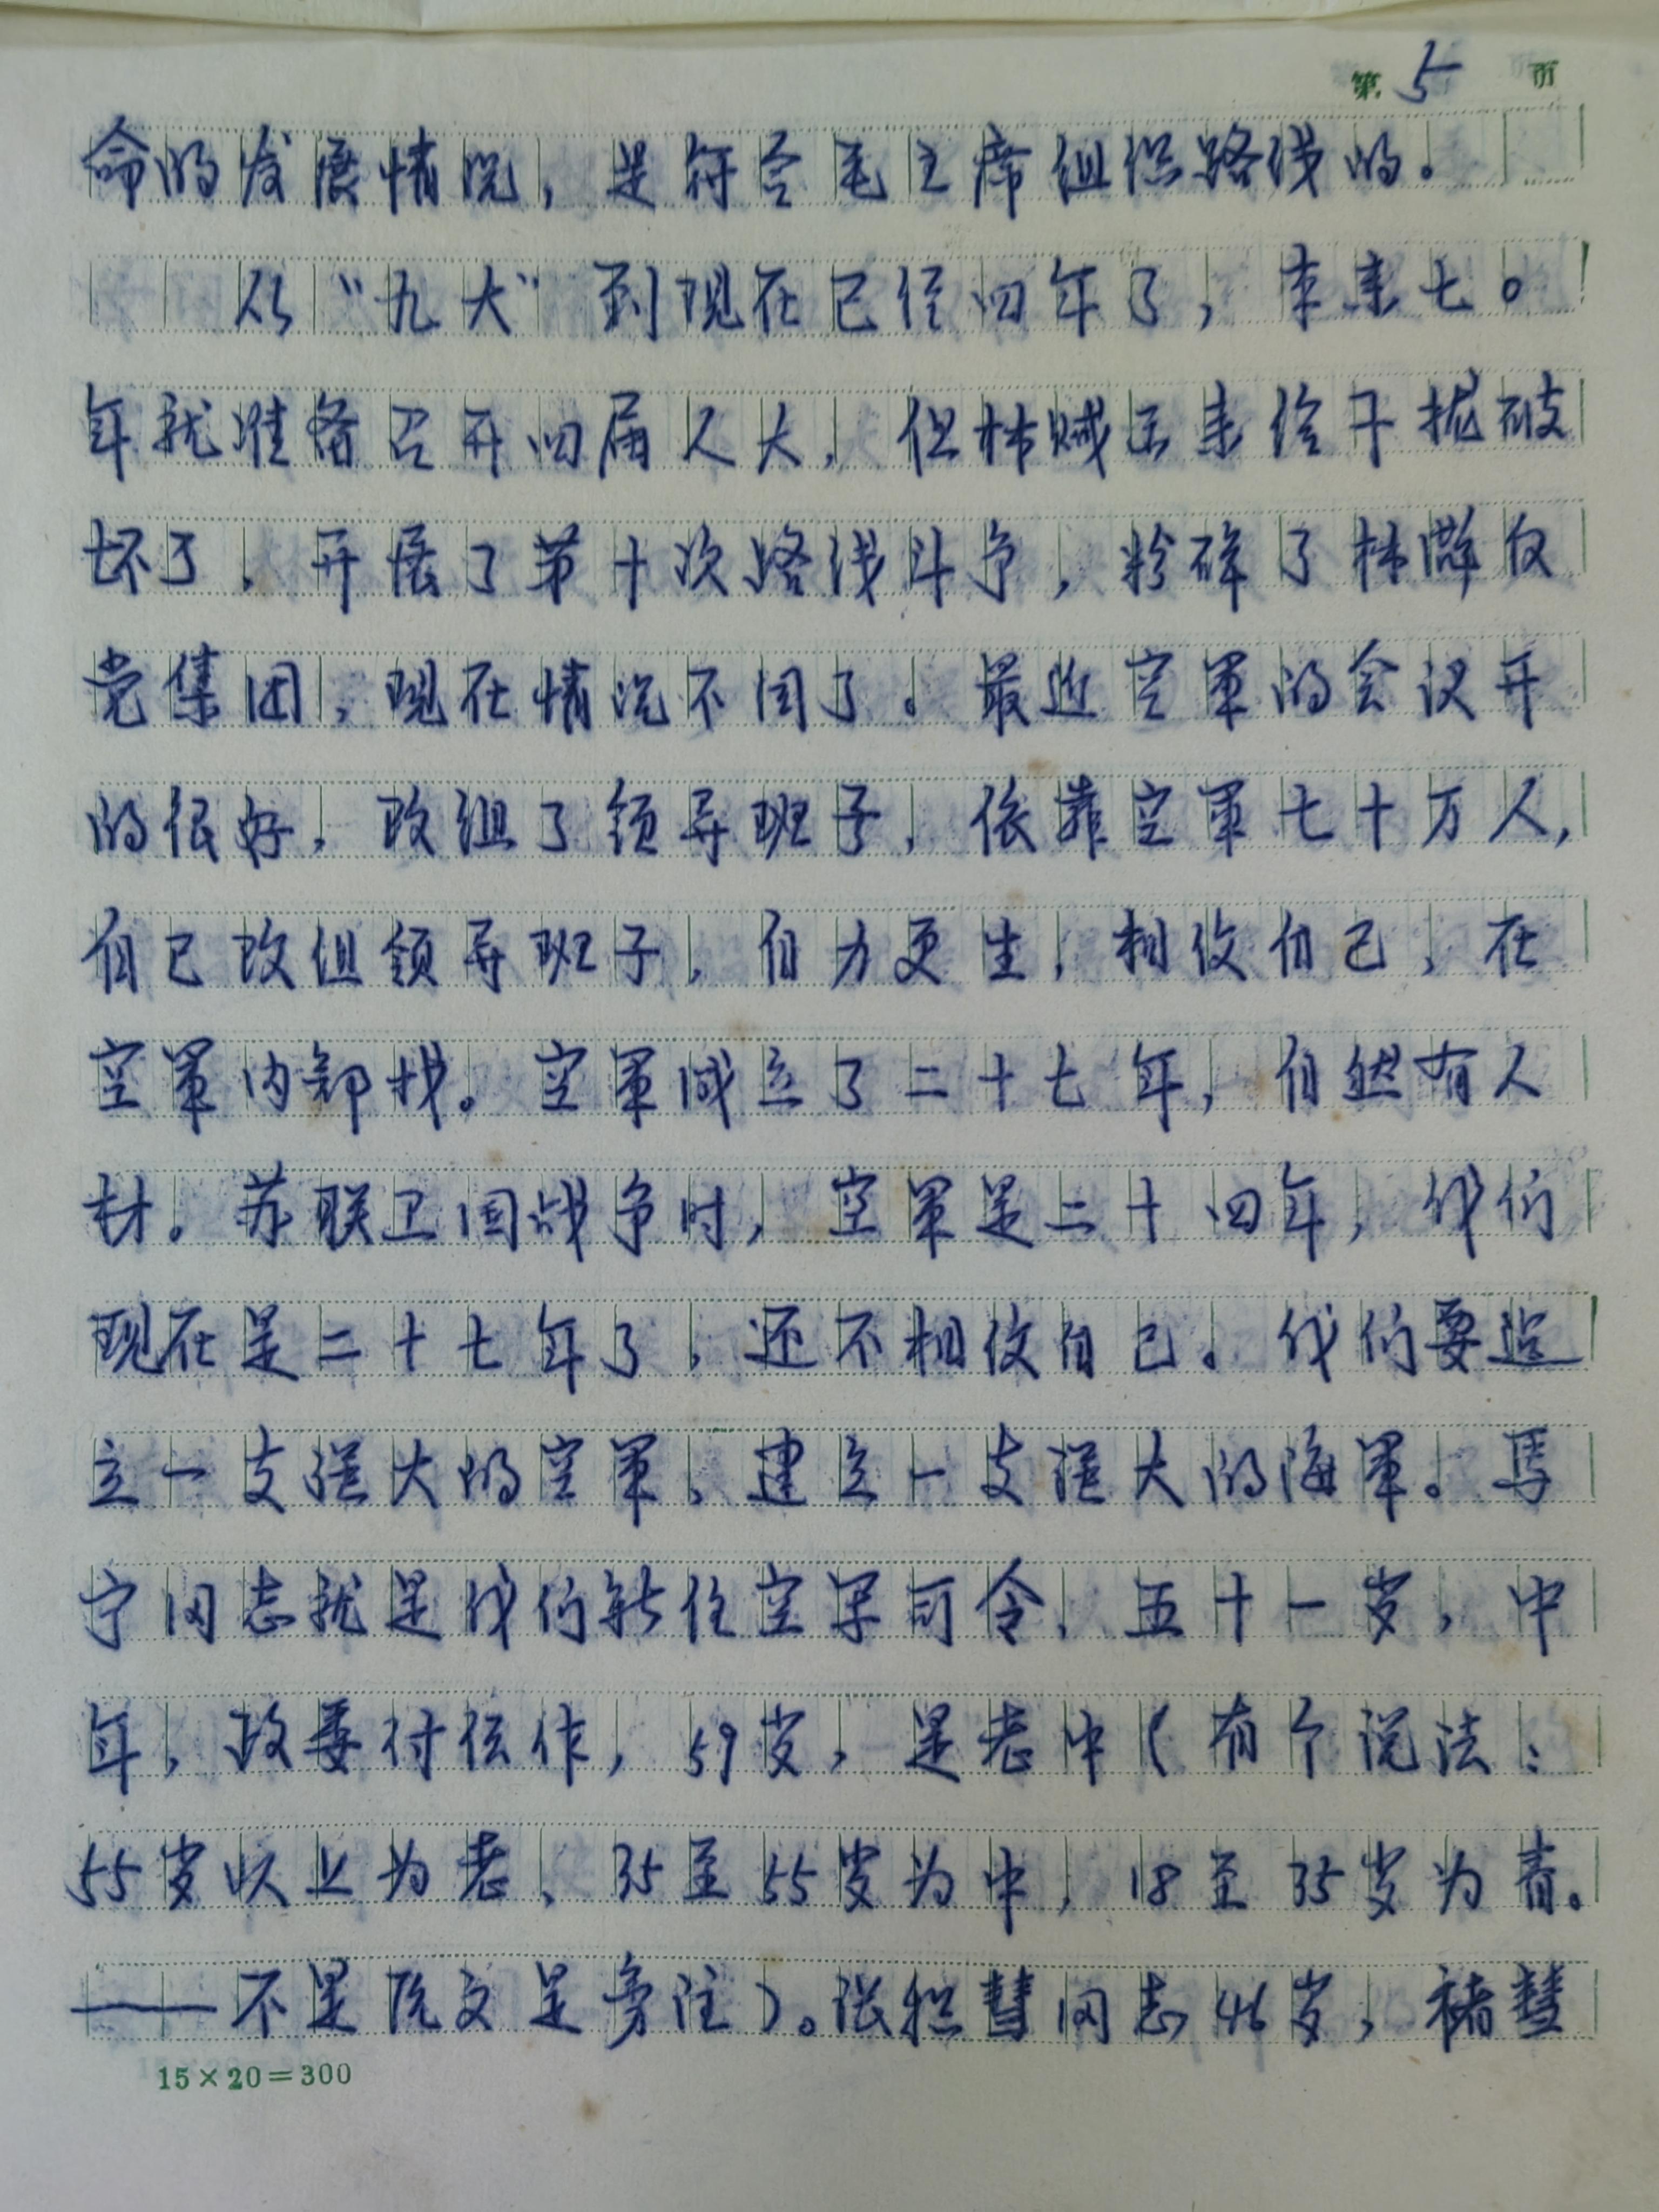 第5页
命的发展情况，是符合毛主席组织路线的。
从“九大”到现在已经四年了，本来七〇
年就准备召开四届人大，但林贼亓来给干扰破
坏了，开展了第十次路线斗争，粉碎了林陈反
党集团，现在情况不同了。最近空军的会议开
的很好，改组了领导班子，依靠空军七十万人，
自己改组领导班子，自力更生，相攸自己，在
空军内部找。空军成立了二十七年，自然有人
材。苏联卫国战争时，空军是二十四年，我们
现在是二十七年了，还不相攸自己。我们要造
立一支强大的空军，建立一支强大的海军。马
宁同志就是我们新任空军司令，五十一岁，中
年，政委付传作，59岁，是老中（有个说法：
55岁以上为老，35至55岁为中，18至35岁为青。
——不是阮文是旁注）。张积慧同志46岁，褚慧
15×20=300